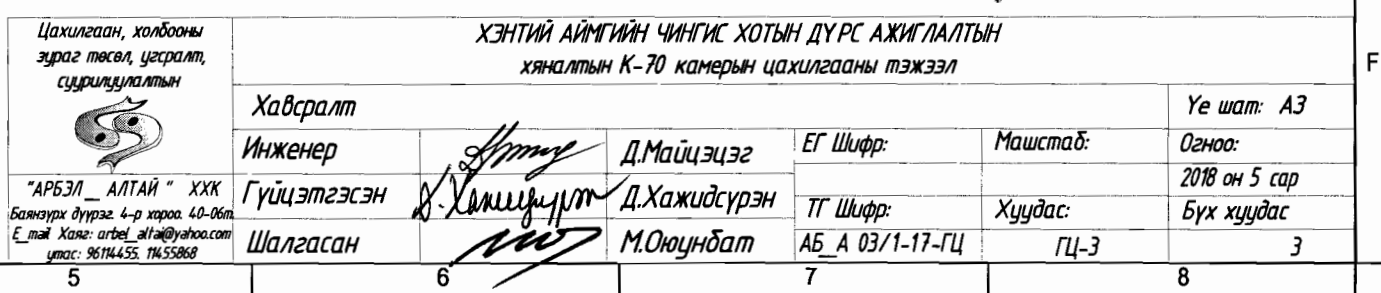 Цахилгаан, холбооны
зураг төсөл, угсралт,
суурилуулалтын
"АРБЭЛ _ АЛТАЙ " ХХК
Баянзүрх дүүрэг. 4-р хороо. 40-06т.
E_mail Хаяг: arbel_altai@yahoo.com
утас: 96114455. 11455868
ХЭНТИЙ АЙМГИЙН ЧИНГИС ХОТЫН ДҮРС АЖИГЛАЛТЫН
хяналтын К-70 камерын цахилгааны тэжээл
Хавсралт
Үе шат: А3
Инженер
Д.Майцэцэг
ЕГ Шифр:
Машстаб:
Огноо:
2018 он 5 сар
Гүйцэтгэсэн
Д.Хажидсүрэн
ТГ Шифр:
Хуудас:
Бүх хуудас
Шалгасан
М.Оюунбат
АБ_А 03/1-17-ГЦ
ГЦ-3
3
F
5 6 7 8